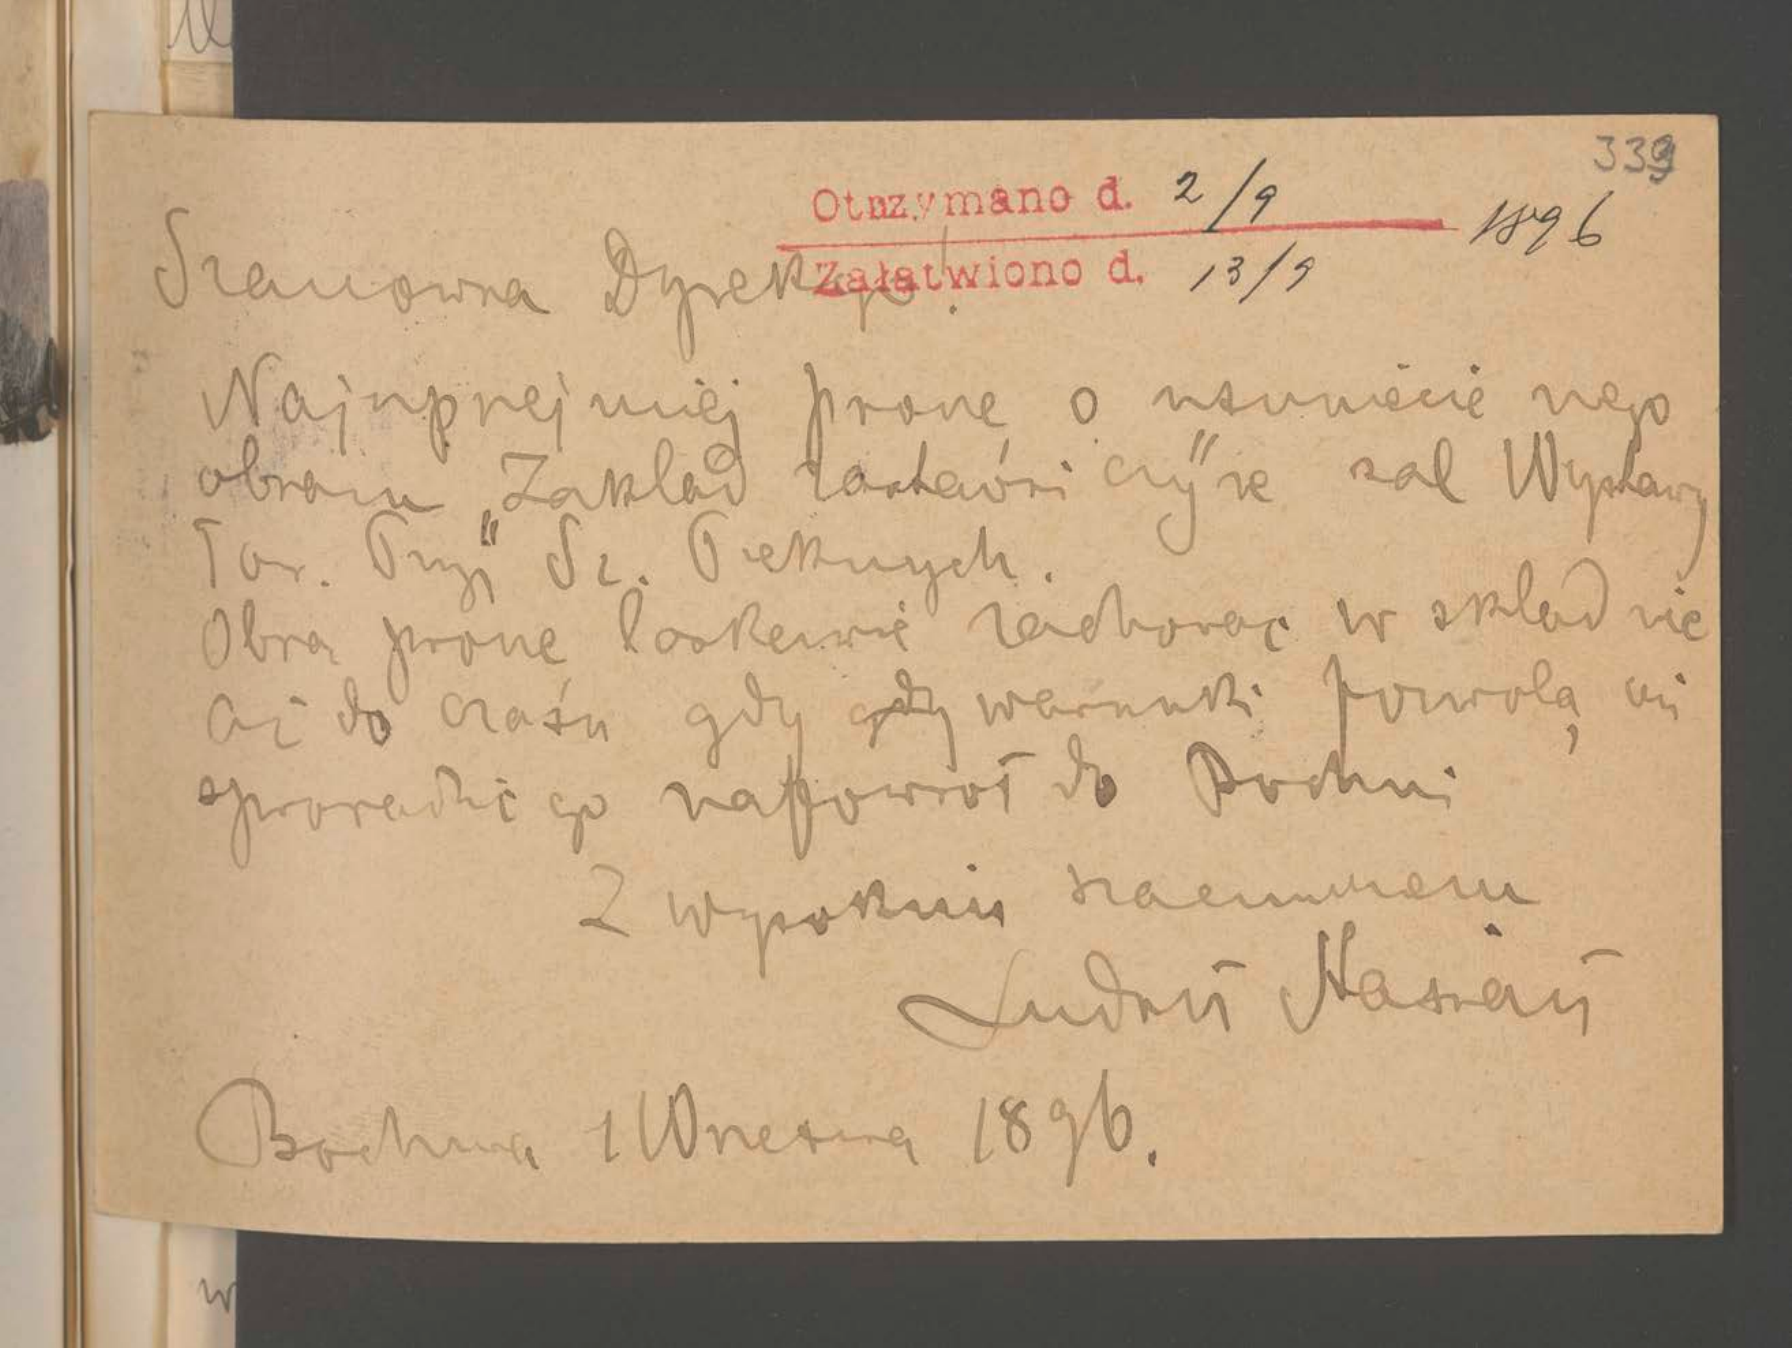 339
Otrzymano d. 2/9
1896
Załatwiono d. 13/9
Szanowna Dyrekcyo!
Najuprzejmiej proszę o usunięcie mego
obrazu „Zakład zastawniczy" ze sal Wystawy
Tow. Przyj. Sz. Pięknych.
Obraz proszę łaskawie zachować w składzie
aż do czasu gdy gdy warunki pozwolą mi
sprowadzić go napowrót do Bochni
Z wysokim szacunkiem
Ludwik Stasiak
Bochnia 1 Września 1896.